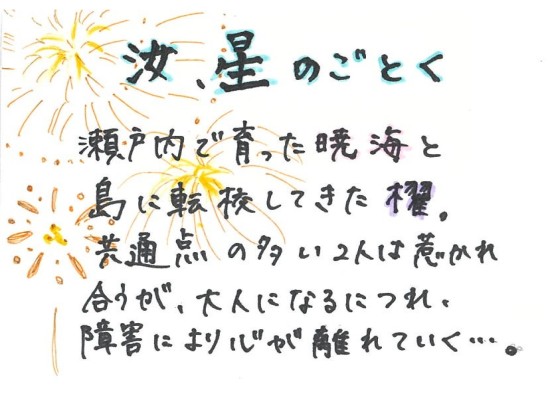 汝、星のごとく
瀬戸内で育った暁海と
島に転校してきた櫂。
共通点の多い2人は惹かれ
合うが、大人になるにつれ、
障害により心が離れていく…。